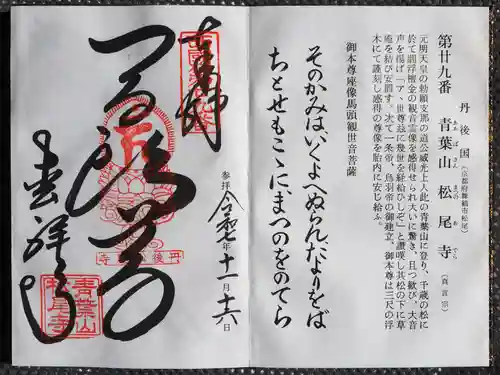 第廿九番
丹後国
青葉山松尾寺
あおばさんまつのおでら
(京都府舞鶴市松尾)
(真言宗)
元明天皇の勅願支那の道公威光上人此の青葉山に登り、千歳の松に
於て閻浮檀金の観音霊像を感得せられ大いに驚き、且つ歓び、大音
声を揚げ「アヽ世尊茲に幾世を経給ひしぞ」と讃嘆し其松の下に草
庵を結び安置す。次て一条帝、鳥羽帝の御建立、御本尊は三尺の浮
木にて謹刻し感得の尊像を胎内に安じ給ふ。
御本尊座像馬頭観世音菩薩
そのかみは、いくよへぬらん、だよりをば
ちとせもこゝに、まつのをのてら
奉拝
参拝 令和七年十一月十六日
丹後
寺
青葉山
松尾寺